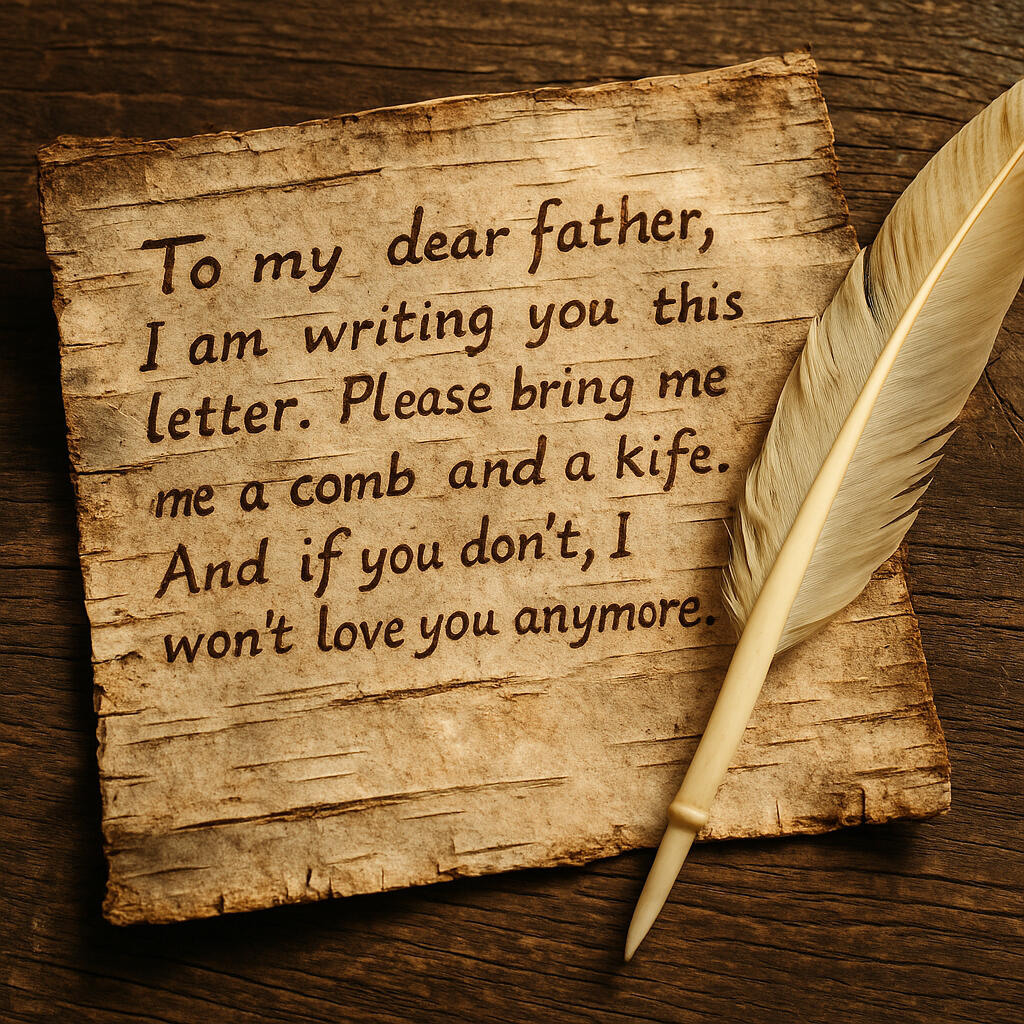 To my dear father,
I am writing you this
letter. Please bring me
me a comb and a kife.
And if you don't, I
won't love you anymore.